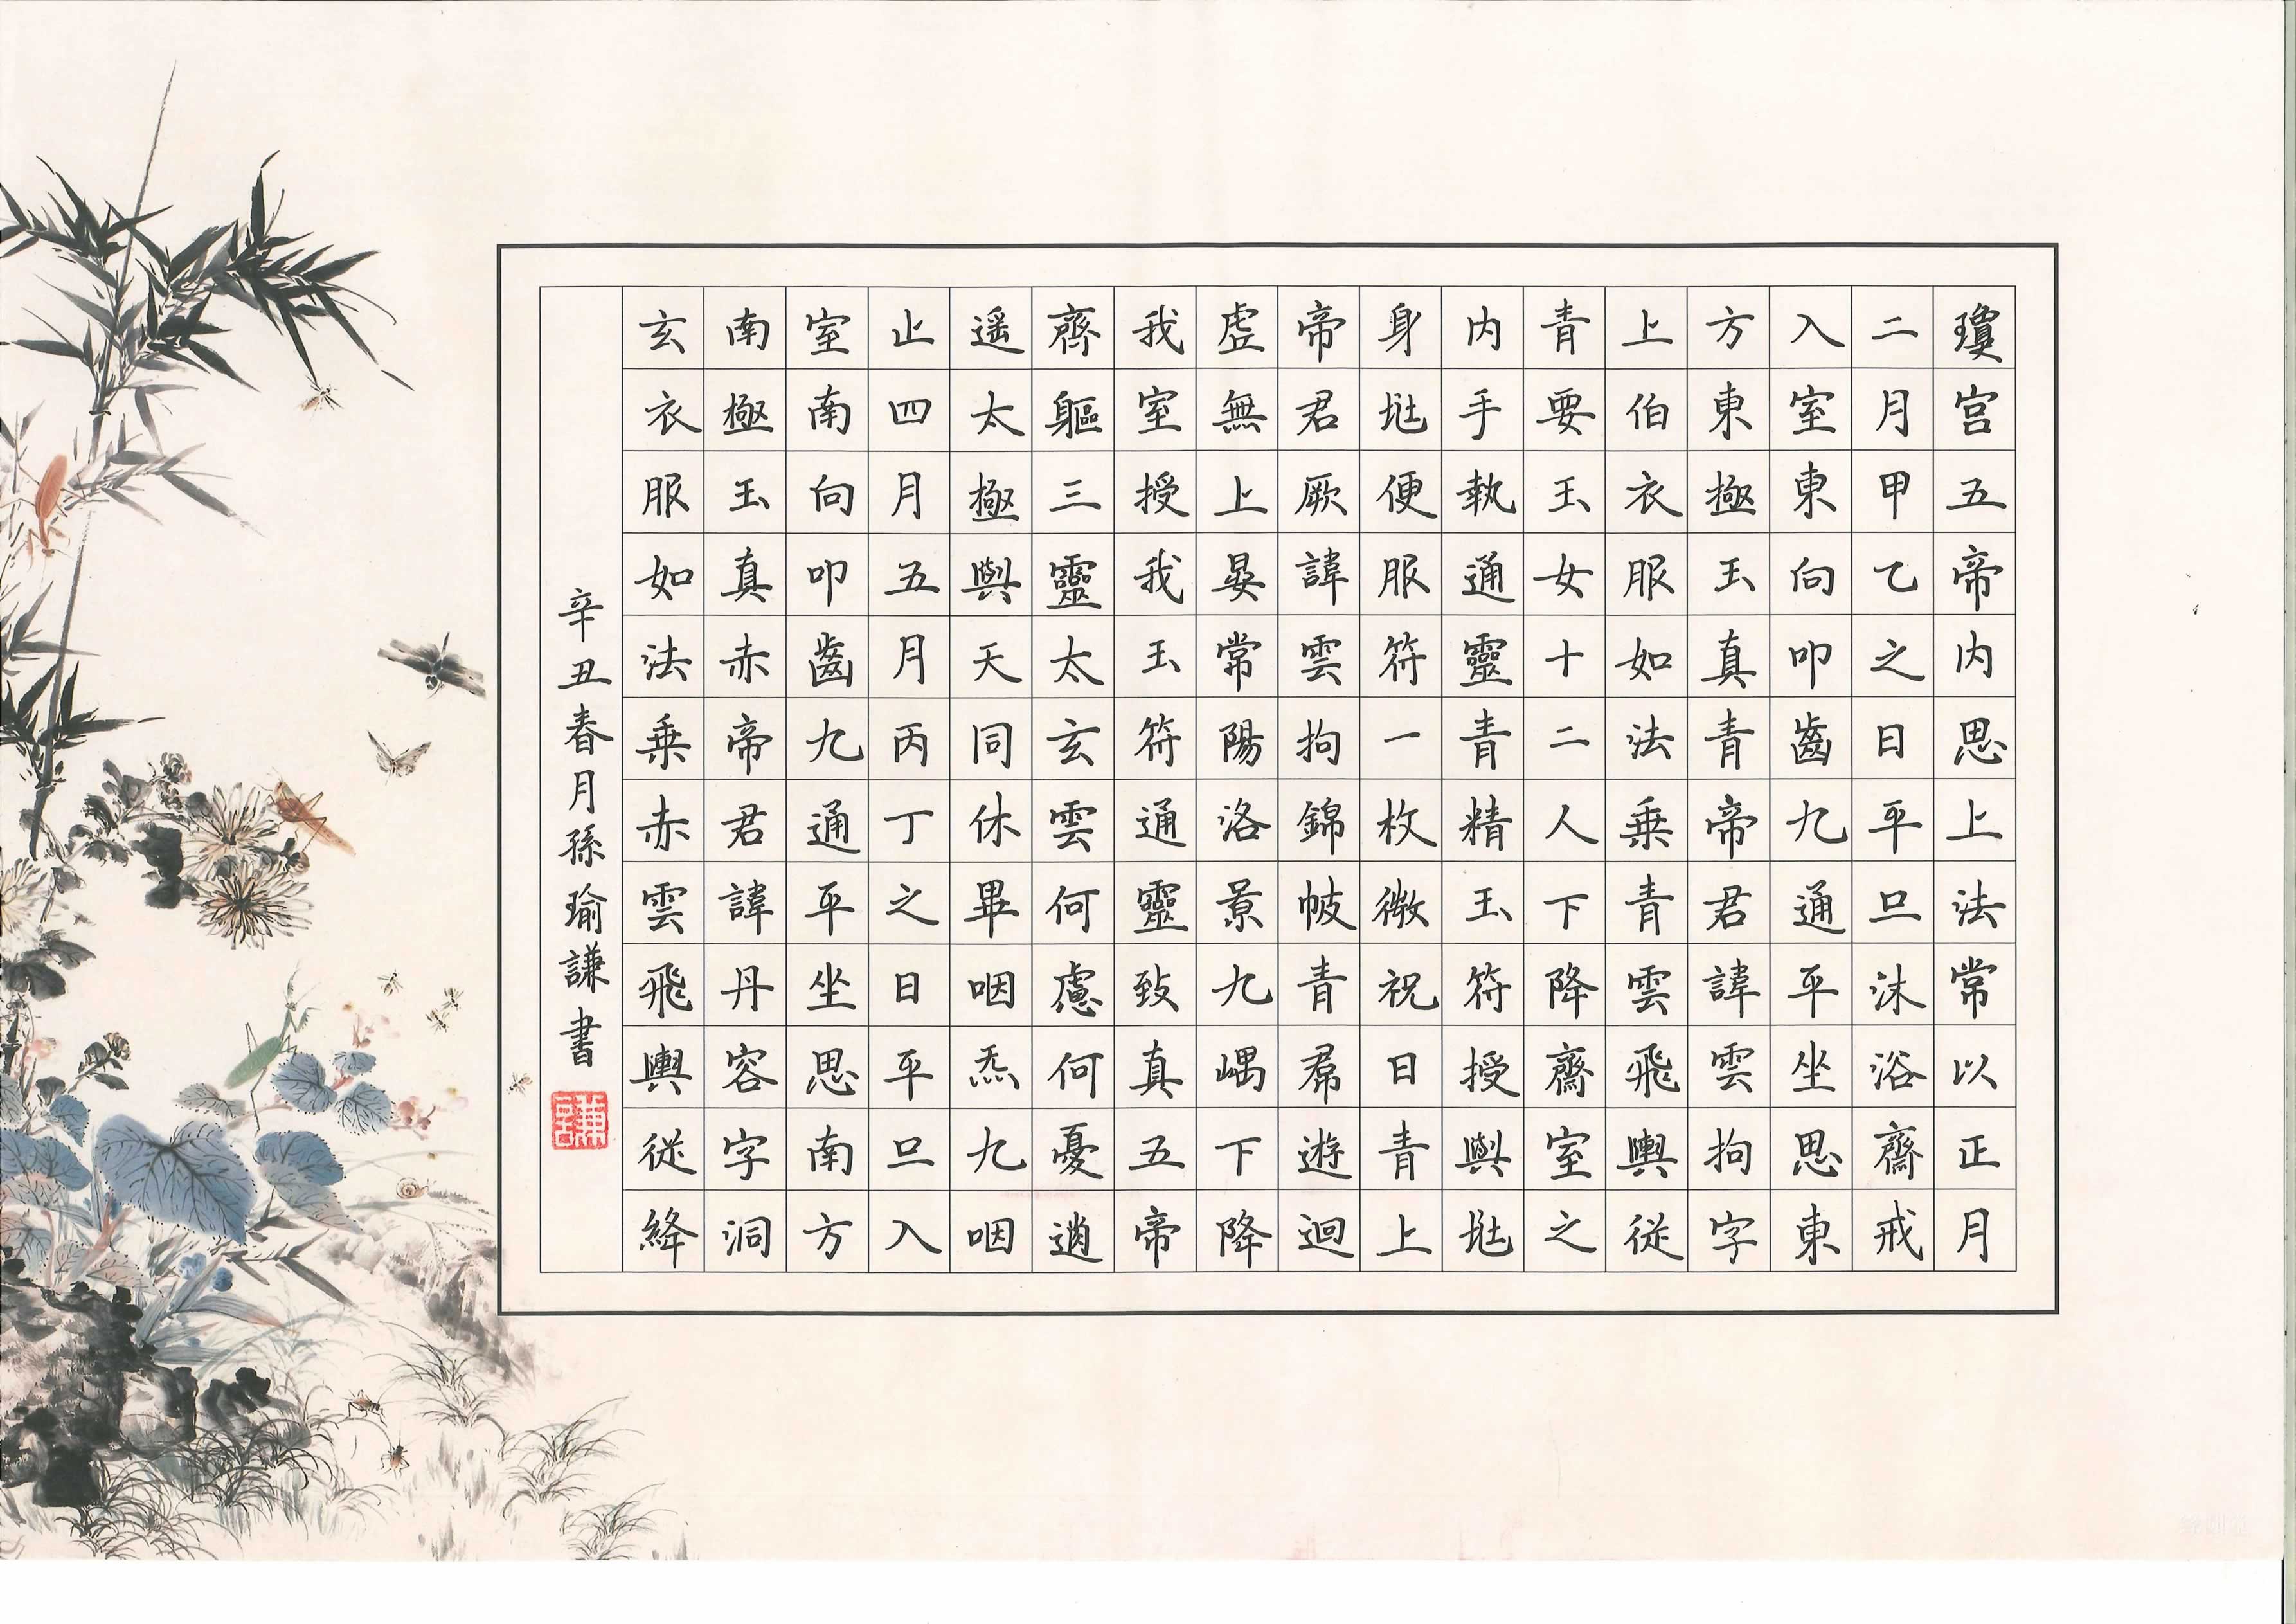 瓊宮五帝内思上法常以正月
二月甲乙之日平旦沐浴齋戒
入室東向叩齒九通平坐思東
方東極玉真青帝君諱雲拘字
上伯衣服如法乘青雲飛輿從
青要玉女十二人下降齋室之
内手執通靈青精玉符授與垗
身垗便服符一枚微祝曰青上
帝君厥諱雲拘錦帔青帬遊迴
虛無上晏常陽洛景九嵎下降
我室授我玉符通靈致真五帝
齊軀三靈太玄雲何慮何憂逍
遥太極與天同休畢咽炁九咽
止四月五月丙丁之日平旦入
室南向叩齒九通平坐思南方
南極玉真赤帝君諱丹容字洞
玄衣服如法乘赤雲飛輿從絳
辛丑春月孫瑜謙書
謙